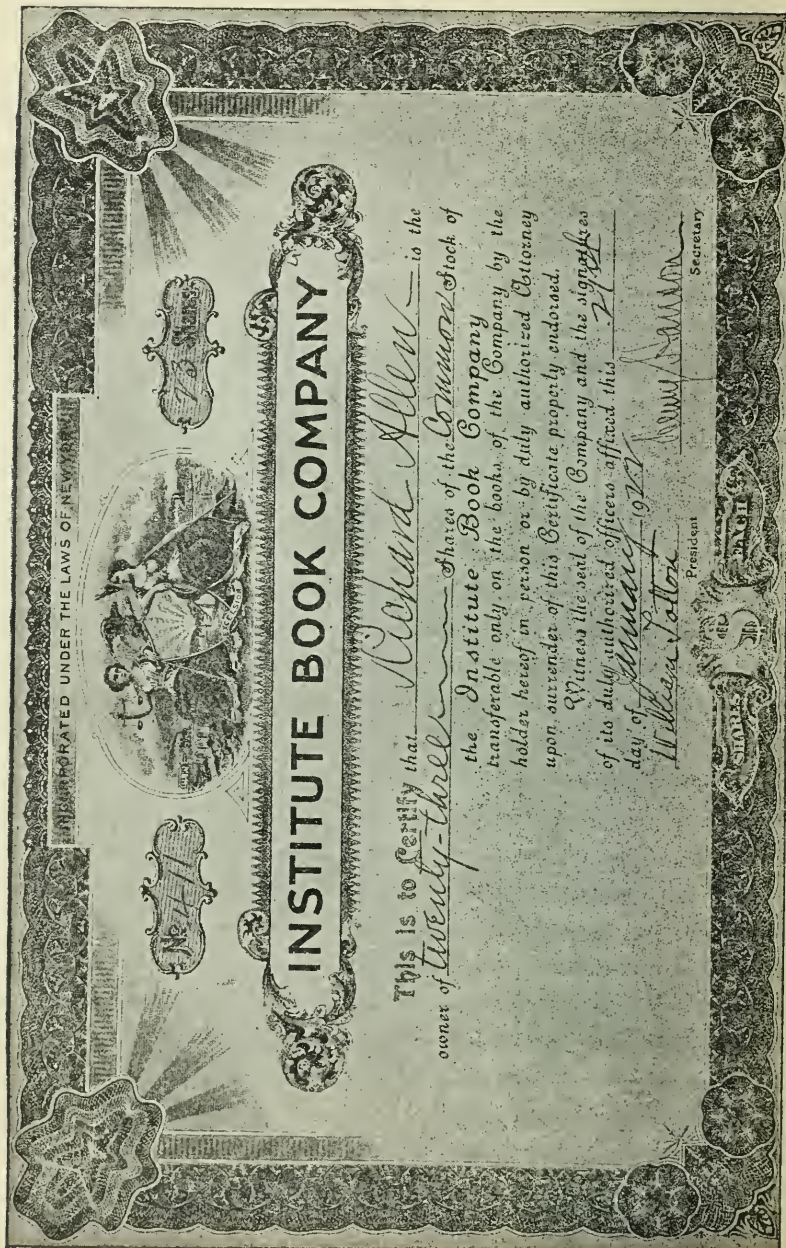 INCORPORATED UNDER THE LAWS OF NEW YORK
No 411
23 Shares
INSTITUTE BOOK COMPANY
This is to Certify that Richard Allen is the
owner of twenty-three Shares of the Common Stock of
the Institute Book Company
transferable only on the books of the Company by the
holder hereof in person or by duly authorized Attorney
upon surrender of this Certificate properly endorsed.
Witness the seal of the Company and the signatures
of its duly authorized officers affixed this
day of January 19
William
President
Secretary
SHARES
EACH